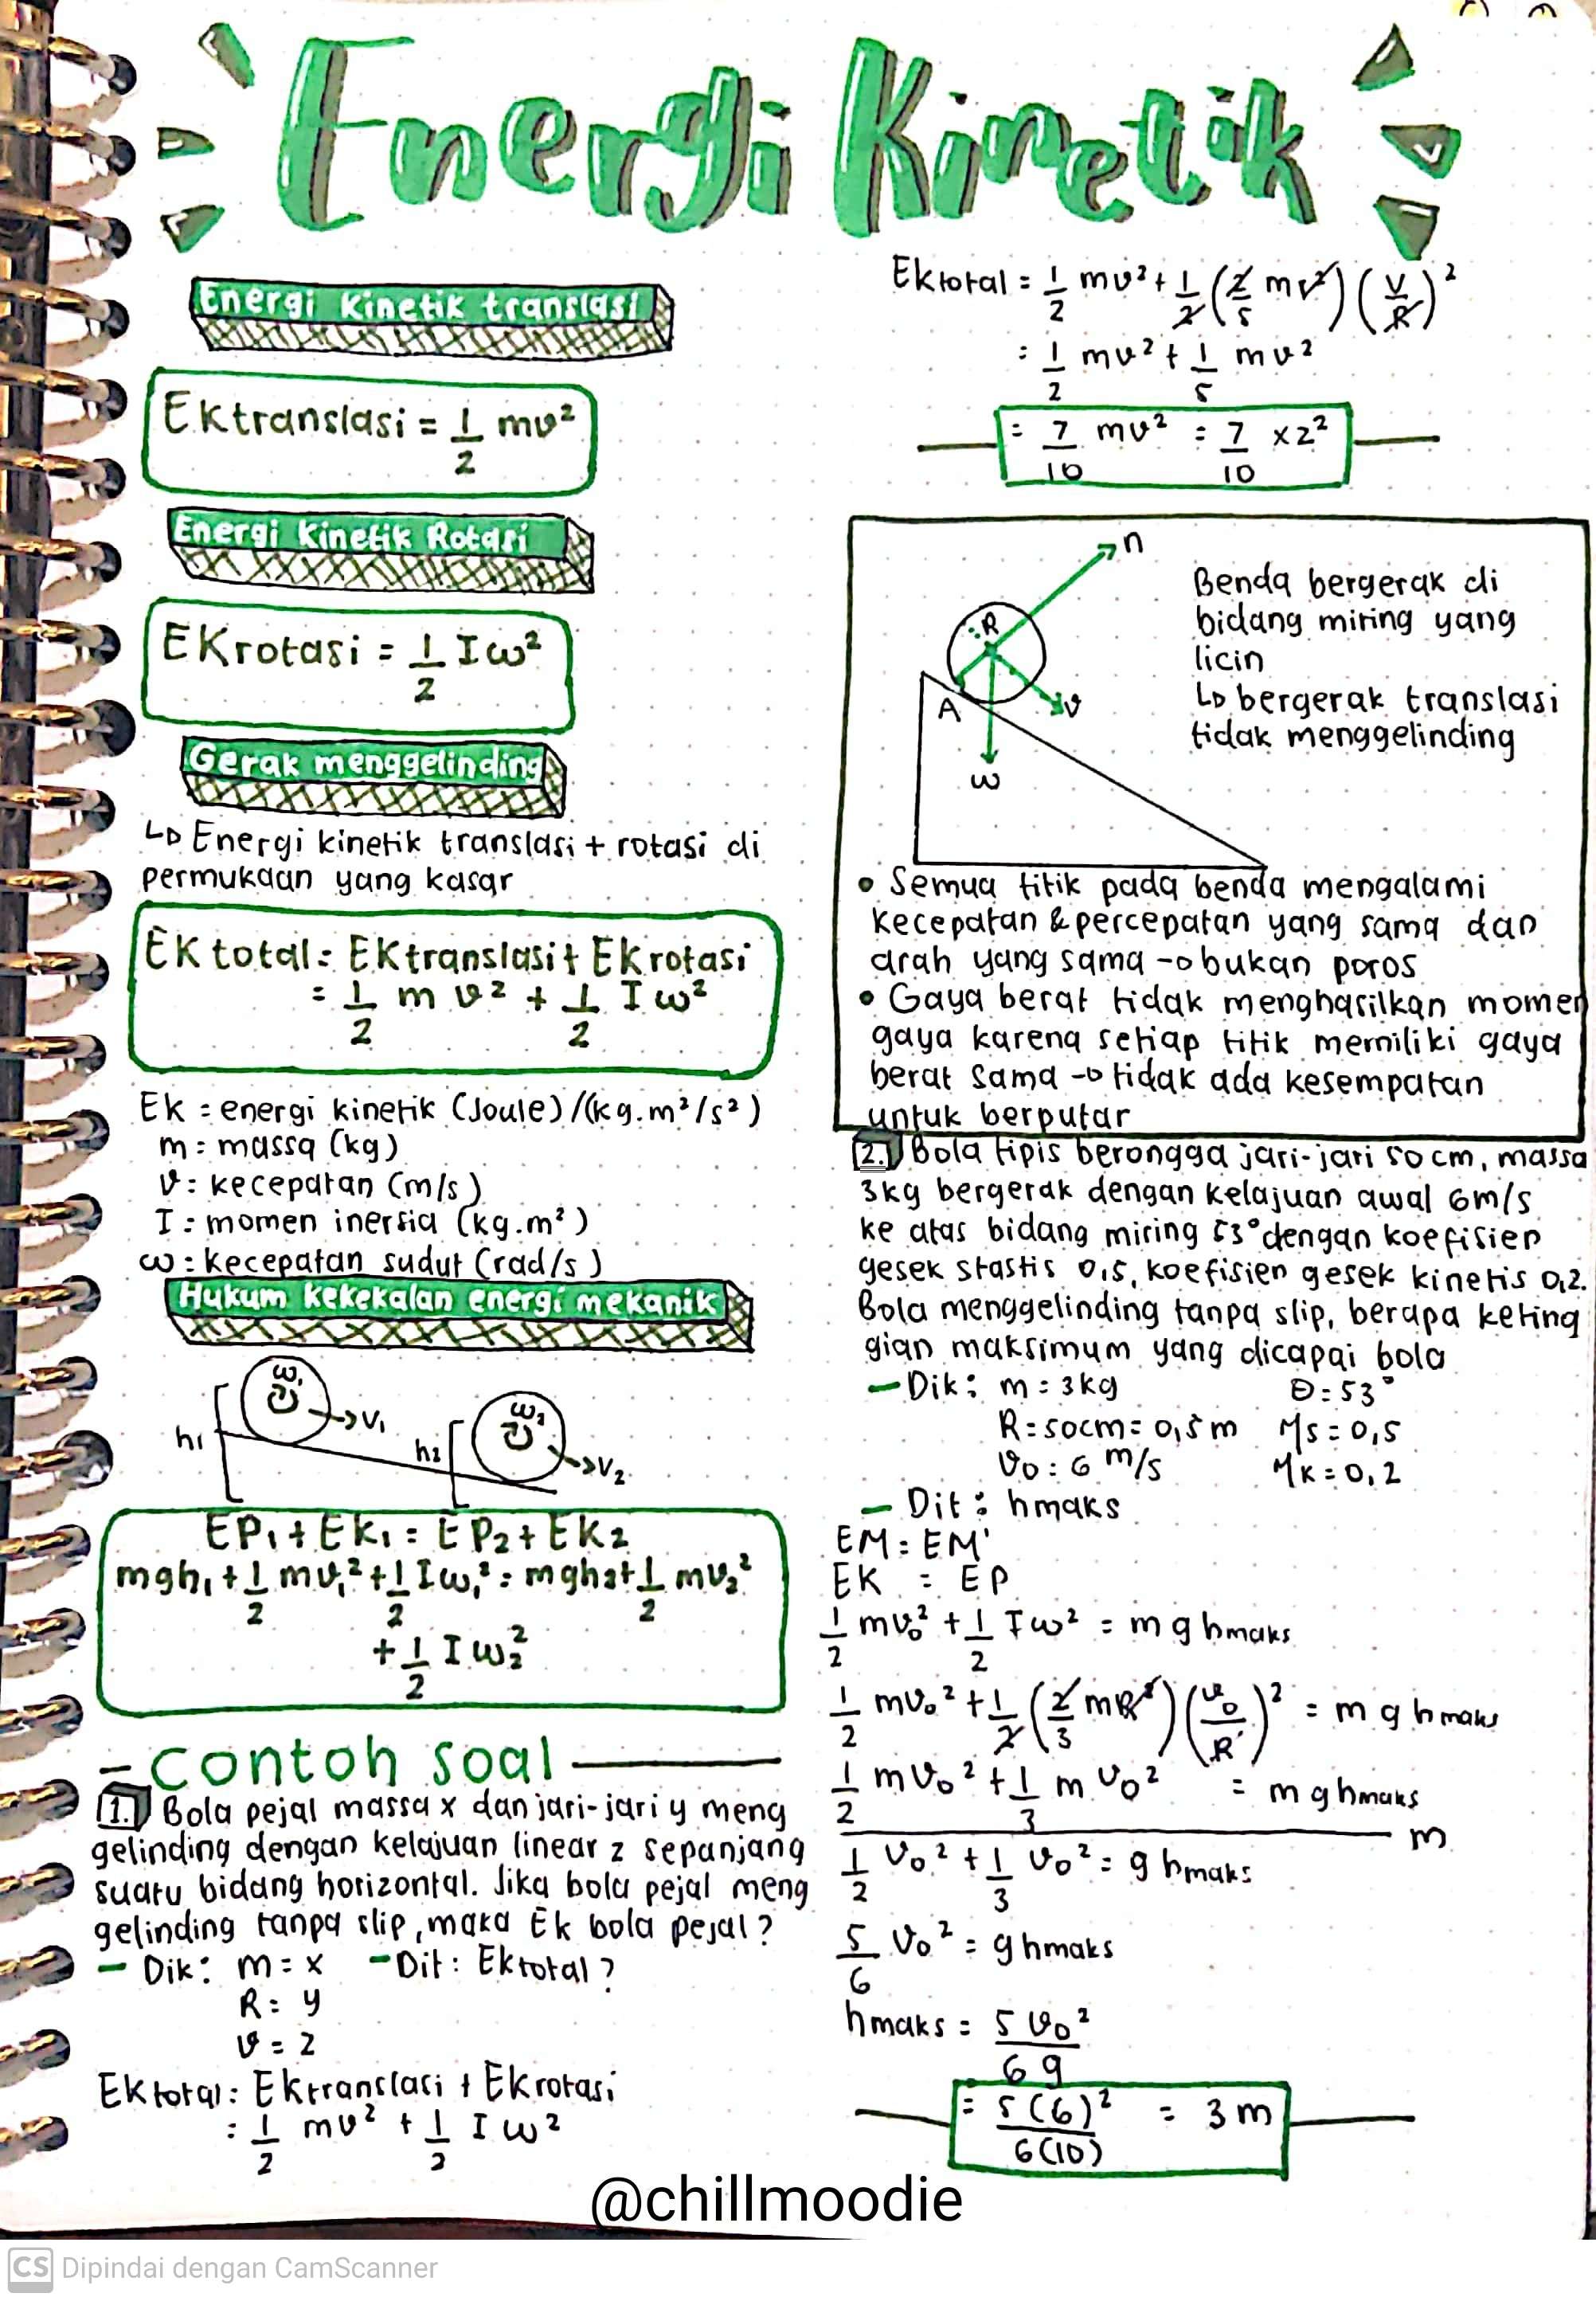 Energi Kinetik
Energi Kinetik translasi
EKtranslasi = 1/2 mv²
Energi Kinetik Rotasi
EKrotasi = 1/2 Iω²
Gerak menggelinding
↳ Energi kinetik translasi + rotasi di
permukaan yang kasar
EK total = EKtranslasi + EKrotasi
= 1/2 m v² + 1/2 I ω²
Ek = energi kinetik (Joule) / (kg.m²/s²)
m = massa (kg)
v : kecepatan (m/s)
I : momen inersia (kg.m²)
ω : kecepatan sudut (rad/s)
Hukum kekekalan energi mekanik
ω₁
h₁
v₁
ω₂
h₂
v₂
EP₁ + EK₁ = EP₂ + EK₂
mgh₁ + 1/2 mv₁² + 1/2 Iω₁² = mgh₂ + 1/2 mv₂²
+ 1/2 I ω₂²
- Contoh soal
1. Bola pejal massa x dan jari-jari y meng
gelinding dengan kelajuan linear z sepanjang
suatu bidang horizontal. Jika bola pejal meng
gelinding tanpa slip, maka Ek bola pejal?
- Dik : m = x - Dit : Ektotal ?
R = y
v = z
EKtotal = EKtranslasi + EKrotasi
= 1/2 mv² + 1/2 I ω²
Ektotal = 1/2 mv² + 1/2 (2/5 mr²) (v/R)²
= 1/2 mv² + 1/5 mv²
= 7/10 mv² = 7/10 xz²
n
R
A
v
w
Benda bergerak di
bidang miring yang
licin
↳ bergerak translasi
tidak menggelinding
• Semua titik pada benda mengalami
kecepatan & percepatan yang sama dan
arah yang sama → bukan poros
• Gaya berat tidak menghasilkan momen
gaya karena setiap titik memiliki gaya
berat sama → tidak ada kesempatan
untuk berputar
2. Bola tipis berongga jari-jari 50 cm, massa
3kg bergerak dengan kelajuan awal 6m/s
ke atas bidang miring 53° dengan koefisien
gesek stastis 0,5, koefisien gesek kinetis 0,2.
Bola menggelinding tanpa slip, berapa keting
gian maksimum yang dicapai bola
- Dik : m = 3kg θ = 53°
R = 50cm = 0,5 m Ms = 0,5
v₀ : 6 m/s Mk = 0,2
- Dit : hmaks
EM = EM'
EK = EP
1/2 mv₀² + 1/2 Iω² = m g hmaks
1/2 mv₀² + 1/2 (2/3 mR²) (v₀/R)² = m g hmaks
1/2 mv₀² + 1/3 m v₀² = m g hmaks
m
1/2 v₀² + 1/3 v₀² = g hmaks
5/6 v₀² = g hmaks
hmaks = 5 v₀²/6 g
= 5(6)²/6(10) = 3 m
@chillmoodie
CS Dipindai dengan CamScanner